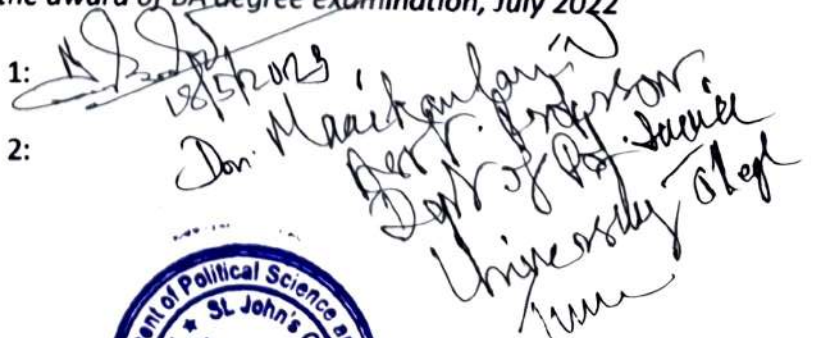 the award of BA degree examination, July 2022
1:
18/5/2023
2:
Dr.
Asst. Professor
Dept of Pol. Science
University College
ent of Political Science a
★ St. John's C